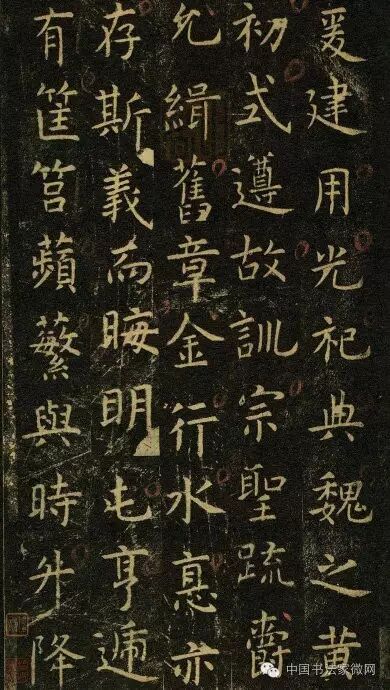 爰建用光祀典魏之黃
初式遵故訓宗聖疏爵
允緝舊章金行水悳亦
存斯義而晦明屯亨遞
有筐筥蘋蘩與時升降
中国书法家微网